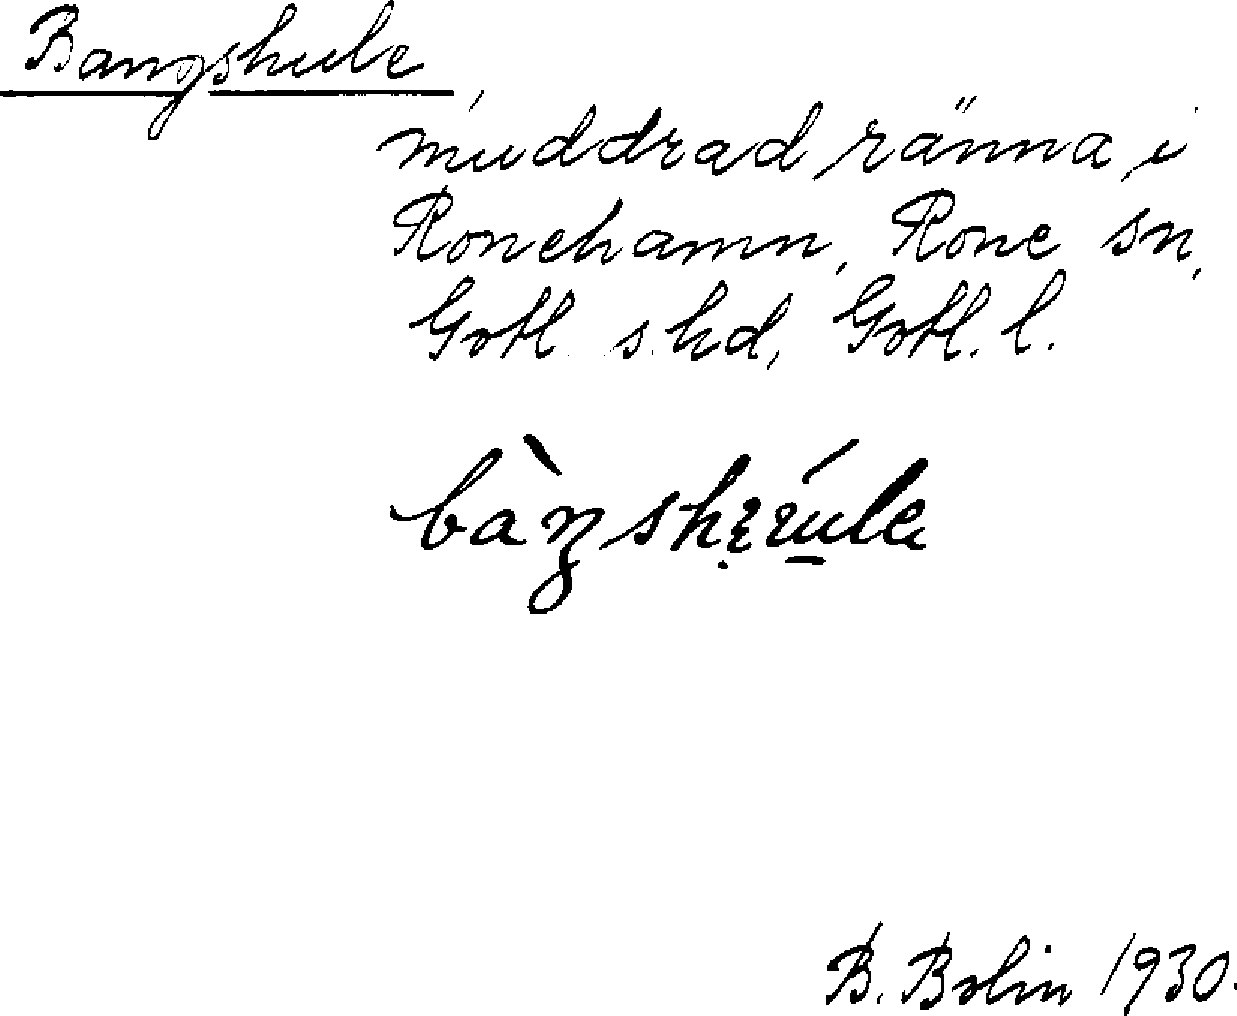 Bangshule,
muddrad ränna, i
Ronehamn, Rone sn,
Gotl. s. hd, Gotl. l.
B. Bolin 1930.